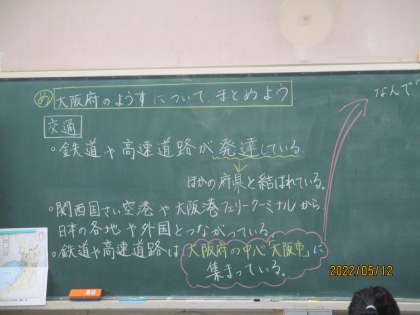 め 大阪府のようすについて、まとめよう
なんで
交通
・鉄道や高速道路が発達している。
ほかの府県と結ばれている。
・関西国さい空港や大阪港フェリーターミナルから
日本の各地や外国とつながっている。
・鉄道や高速道路は大阪府の中心「大阪市」に
集まっている。
2022/05/12